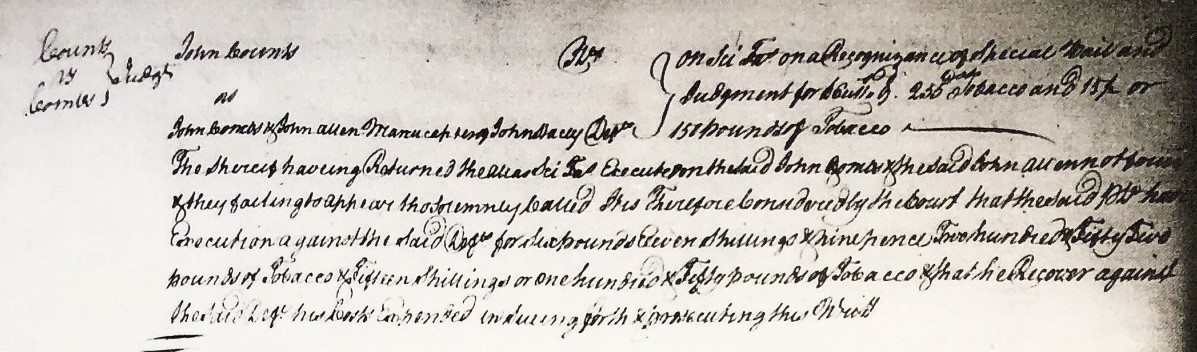 Counts
vs } Judgt
Combs
John Counts Plt
vs
John Combs & John allen Manucaptors John Dacey Defts
on Sci Fas on a Recognizance of Special Bail and
Judgment for 255 Tobacco and 15/ or
150 pounds of Tobacco
The Sherif haveing Returned the alias Sci Fas Executed on the said John Combs & the said John allen not found
& they failing to appear tho Solemnly Called It is Therefore Considered by the Court that the said Plt have
Execution against the said Defts for Six pounds Eleven Shillings & nine pence Two hundred & Fifty Five
pounds of Tobacco & Fifteen Shillings or one hundred & Fifty pounds of Tobacco & that he Recover against
the said Defts his Costs Expended in Sueing forth & prosecuting this Writt